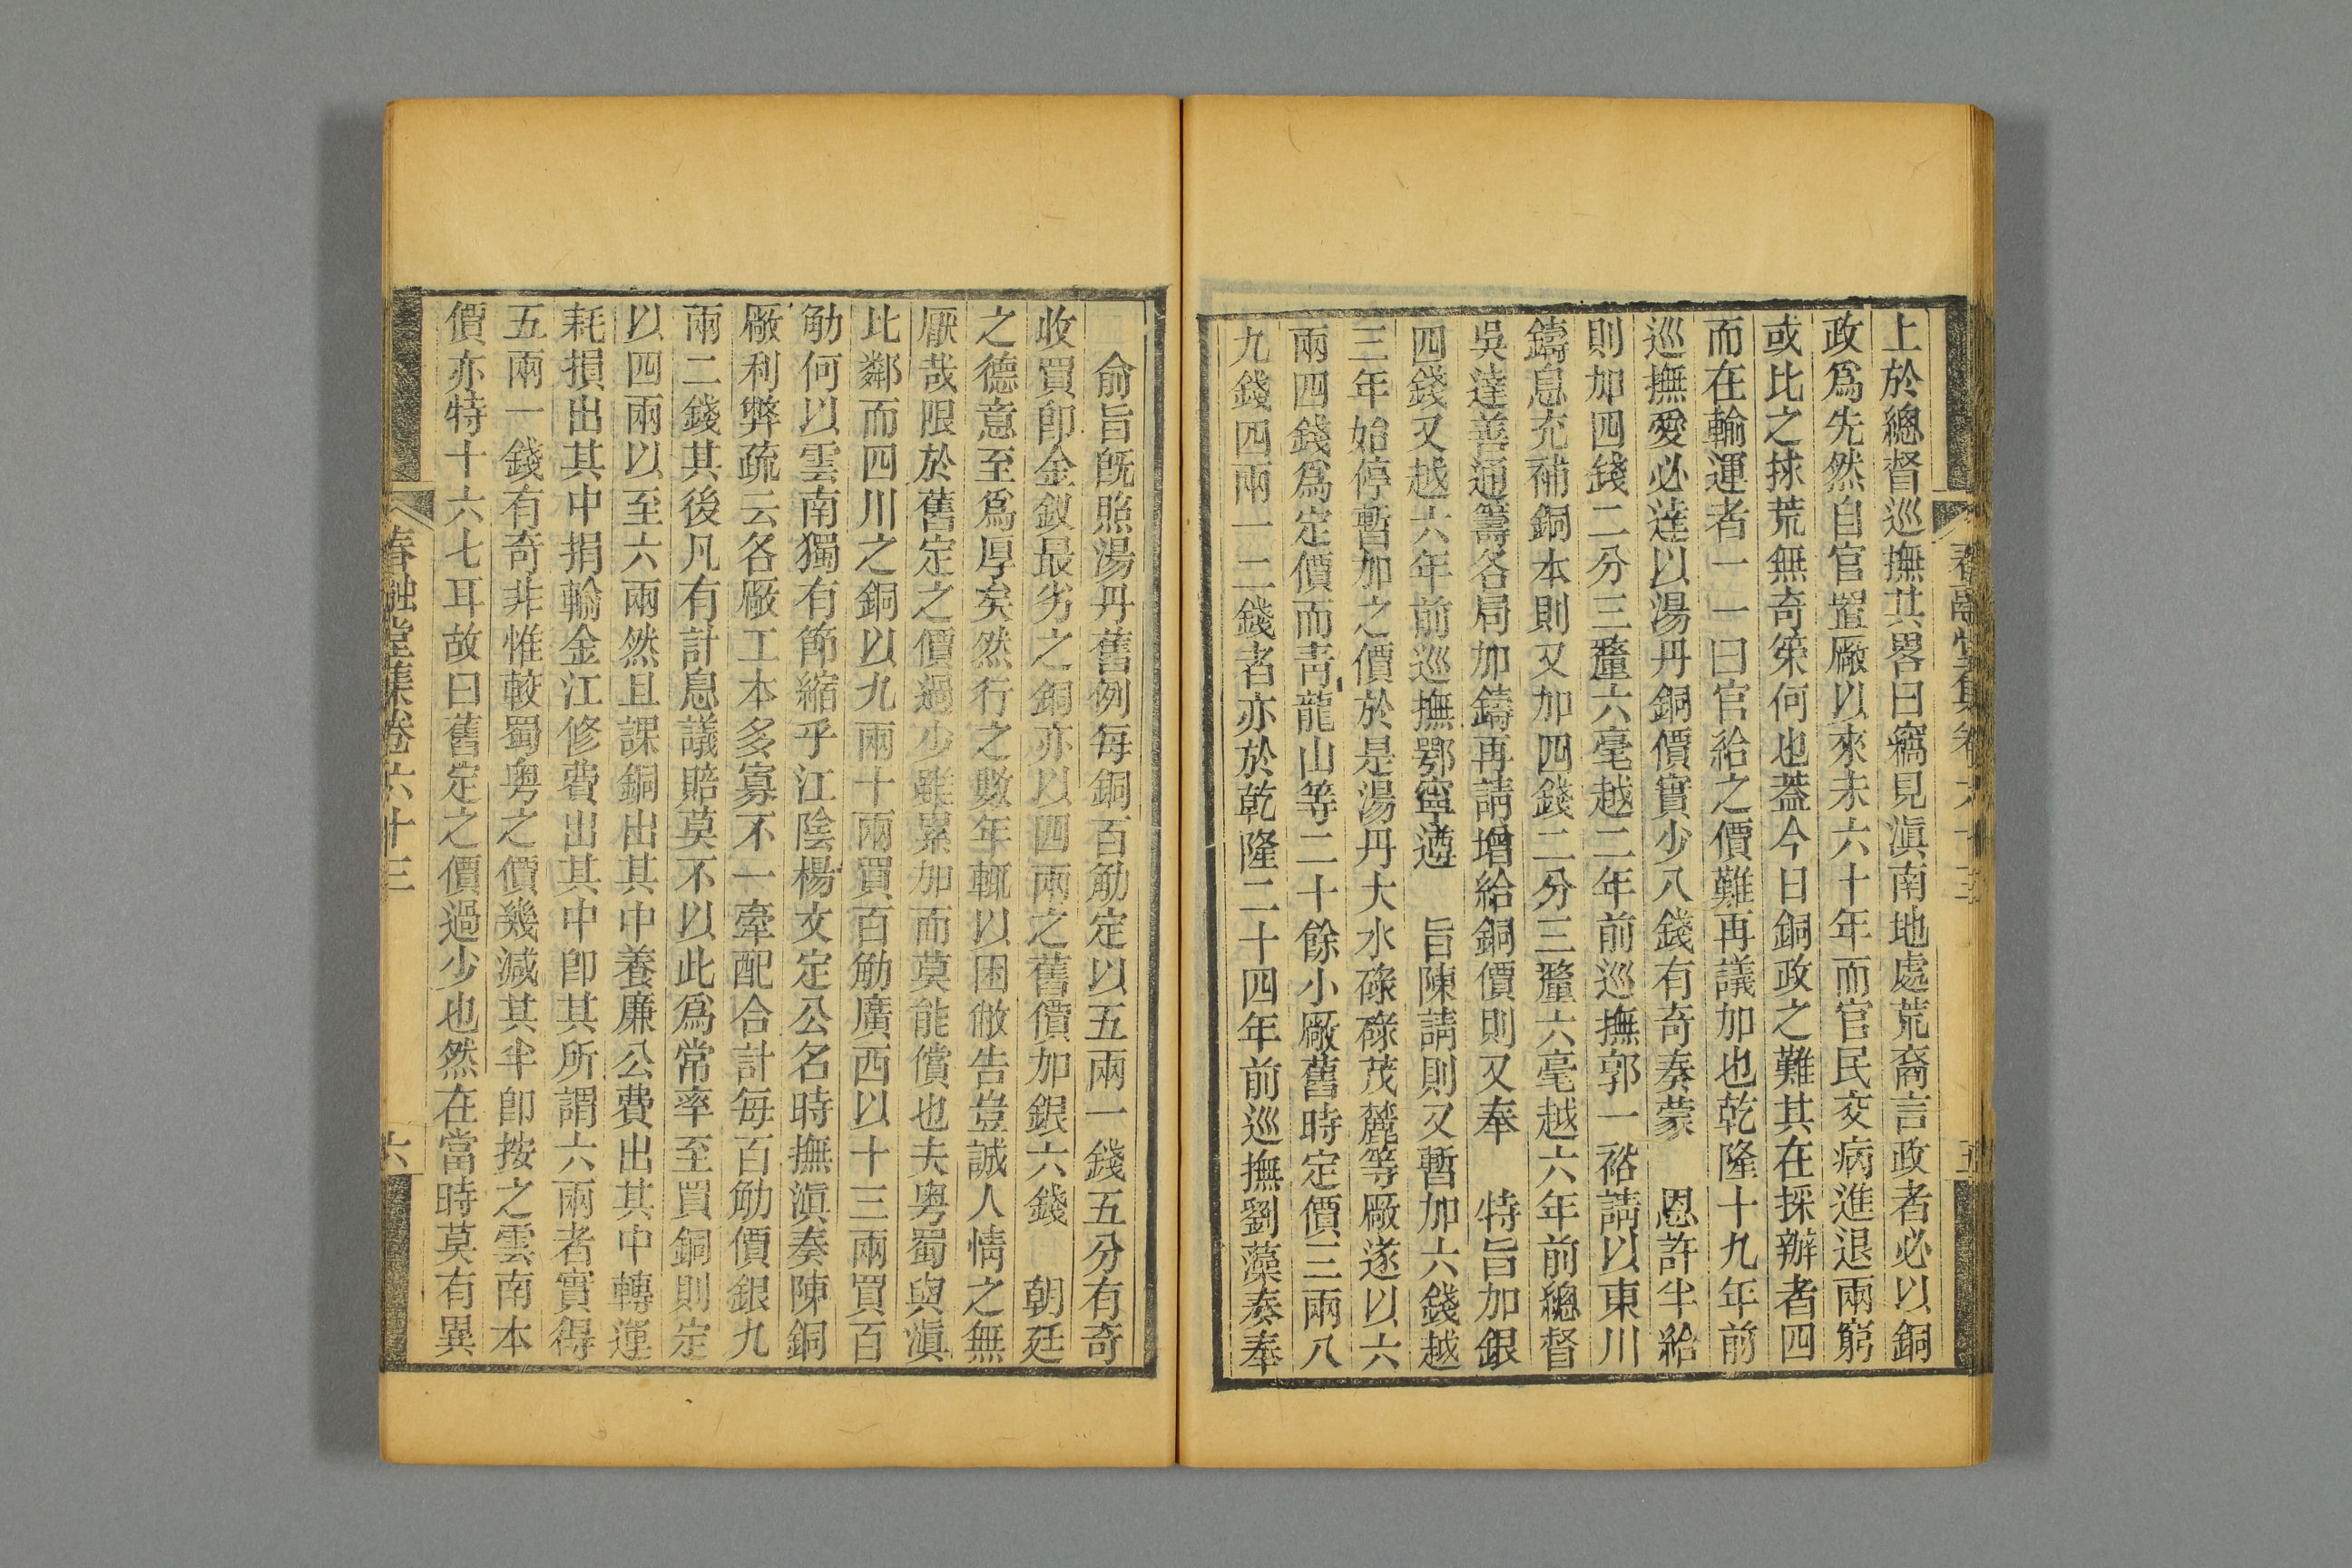 上於總督巡撫其畧曰竊見滇南地處荒裔言政者必以銅
政爲先然自官置厰以來未六十年而官民交病進退兩窮
或比之捄荒無奇筞何也葢今日銅政之難其在採辦者四
而在輸運者一一曰官給之價難再議加也乾隆十九年前
巡撫愛必達以湯丹銅價實少八錢有奇奏蒙 恩許半給
則加四錢二分三釐六毫越二年前巡撫郭一裕請以東川
鑄息充補銅本則又加四錢二分三釐六毫越六年前總督
吳達善通籌各局加鑄再請增給銅價則又奉 特旨加銀
四錢又越六年前巡撫鄂寧遵 旨陳請則又暫加六錢越
三年始停暫加之價於是湯丹大水碌碌茂麓等厰遂以六
兩四錢爲定價而靑龍山等二十餘小厰舊時定價三兩八
九錢四兩一二錢者亦於乾隆二十四年前巡撫劉藻奏奉
春融堂集卷六十三
五
俞旨旣照湯丹舊例每銅百觔定以五兩一錢五分有奇
收買卽金釵最劣之銅亦以四兩之舊價加銀六錢 朝廷
之德意至爲厚矣然行之數年輒以困敝告豈誠人情之無
厭哉限於舊定之價過少雖累加而莫能償也夫粤蜀與滇
比鄰而四川之銅以九兩十兩買百觔廣西以十三兩買百
觔何以雲南獨有節縮乎江陰楊文定公名時撫滇奏陳銅
厰利弊疏云各厰工本多寡不一牽配合計每百觔價銀九
兩二錢其後凡有計息議賠莫不以此爲常率至買銅則定
以四兩以至六兩然且課銅出其中養廉公費出其中轉運
耗損出其中捐輸金江修費出其中卽其所謂六兩者實得
五兩一錢有奇非惟較蜀粤之價幾減其半卽按之雲南本
價亦特十六七耳故曰舊定之價過少也然在當時莫有異
春融堂集卷六十三
六